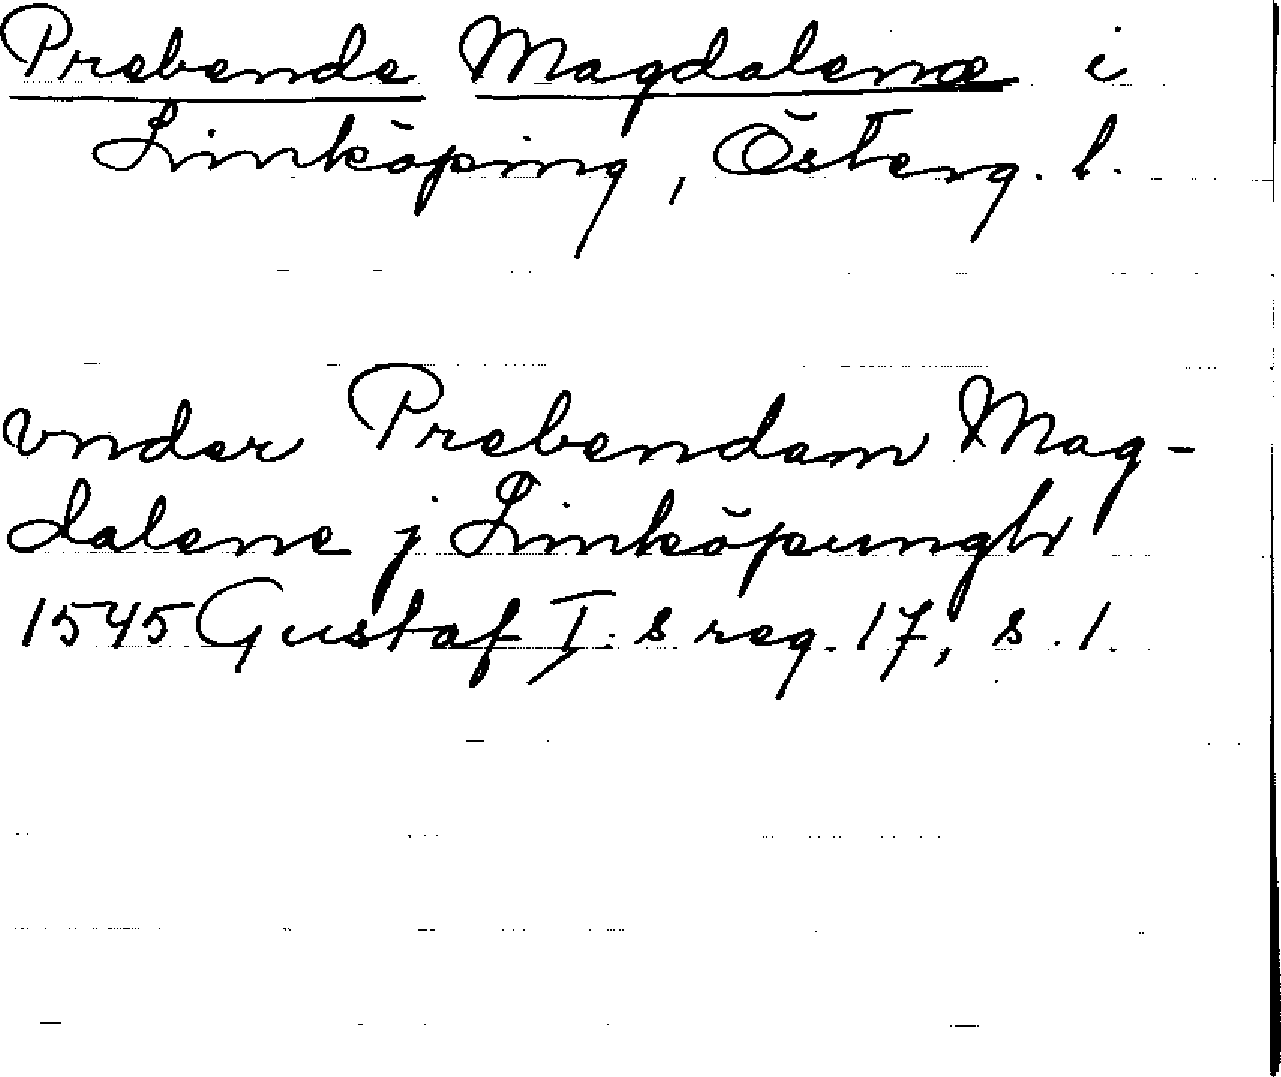 Prebende Magdalenæ i
Linköping, Österg. l.
vnder Prebendam Mag-
dalene j Linköpungh
1545 Gustaf I:s reg. 17, s. 1.